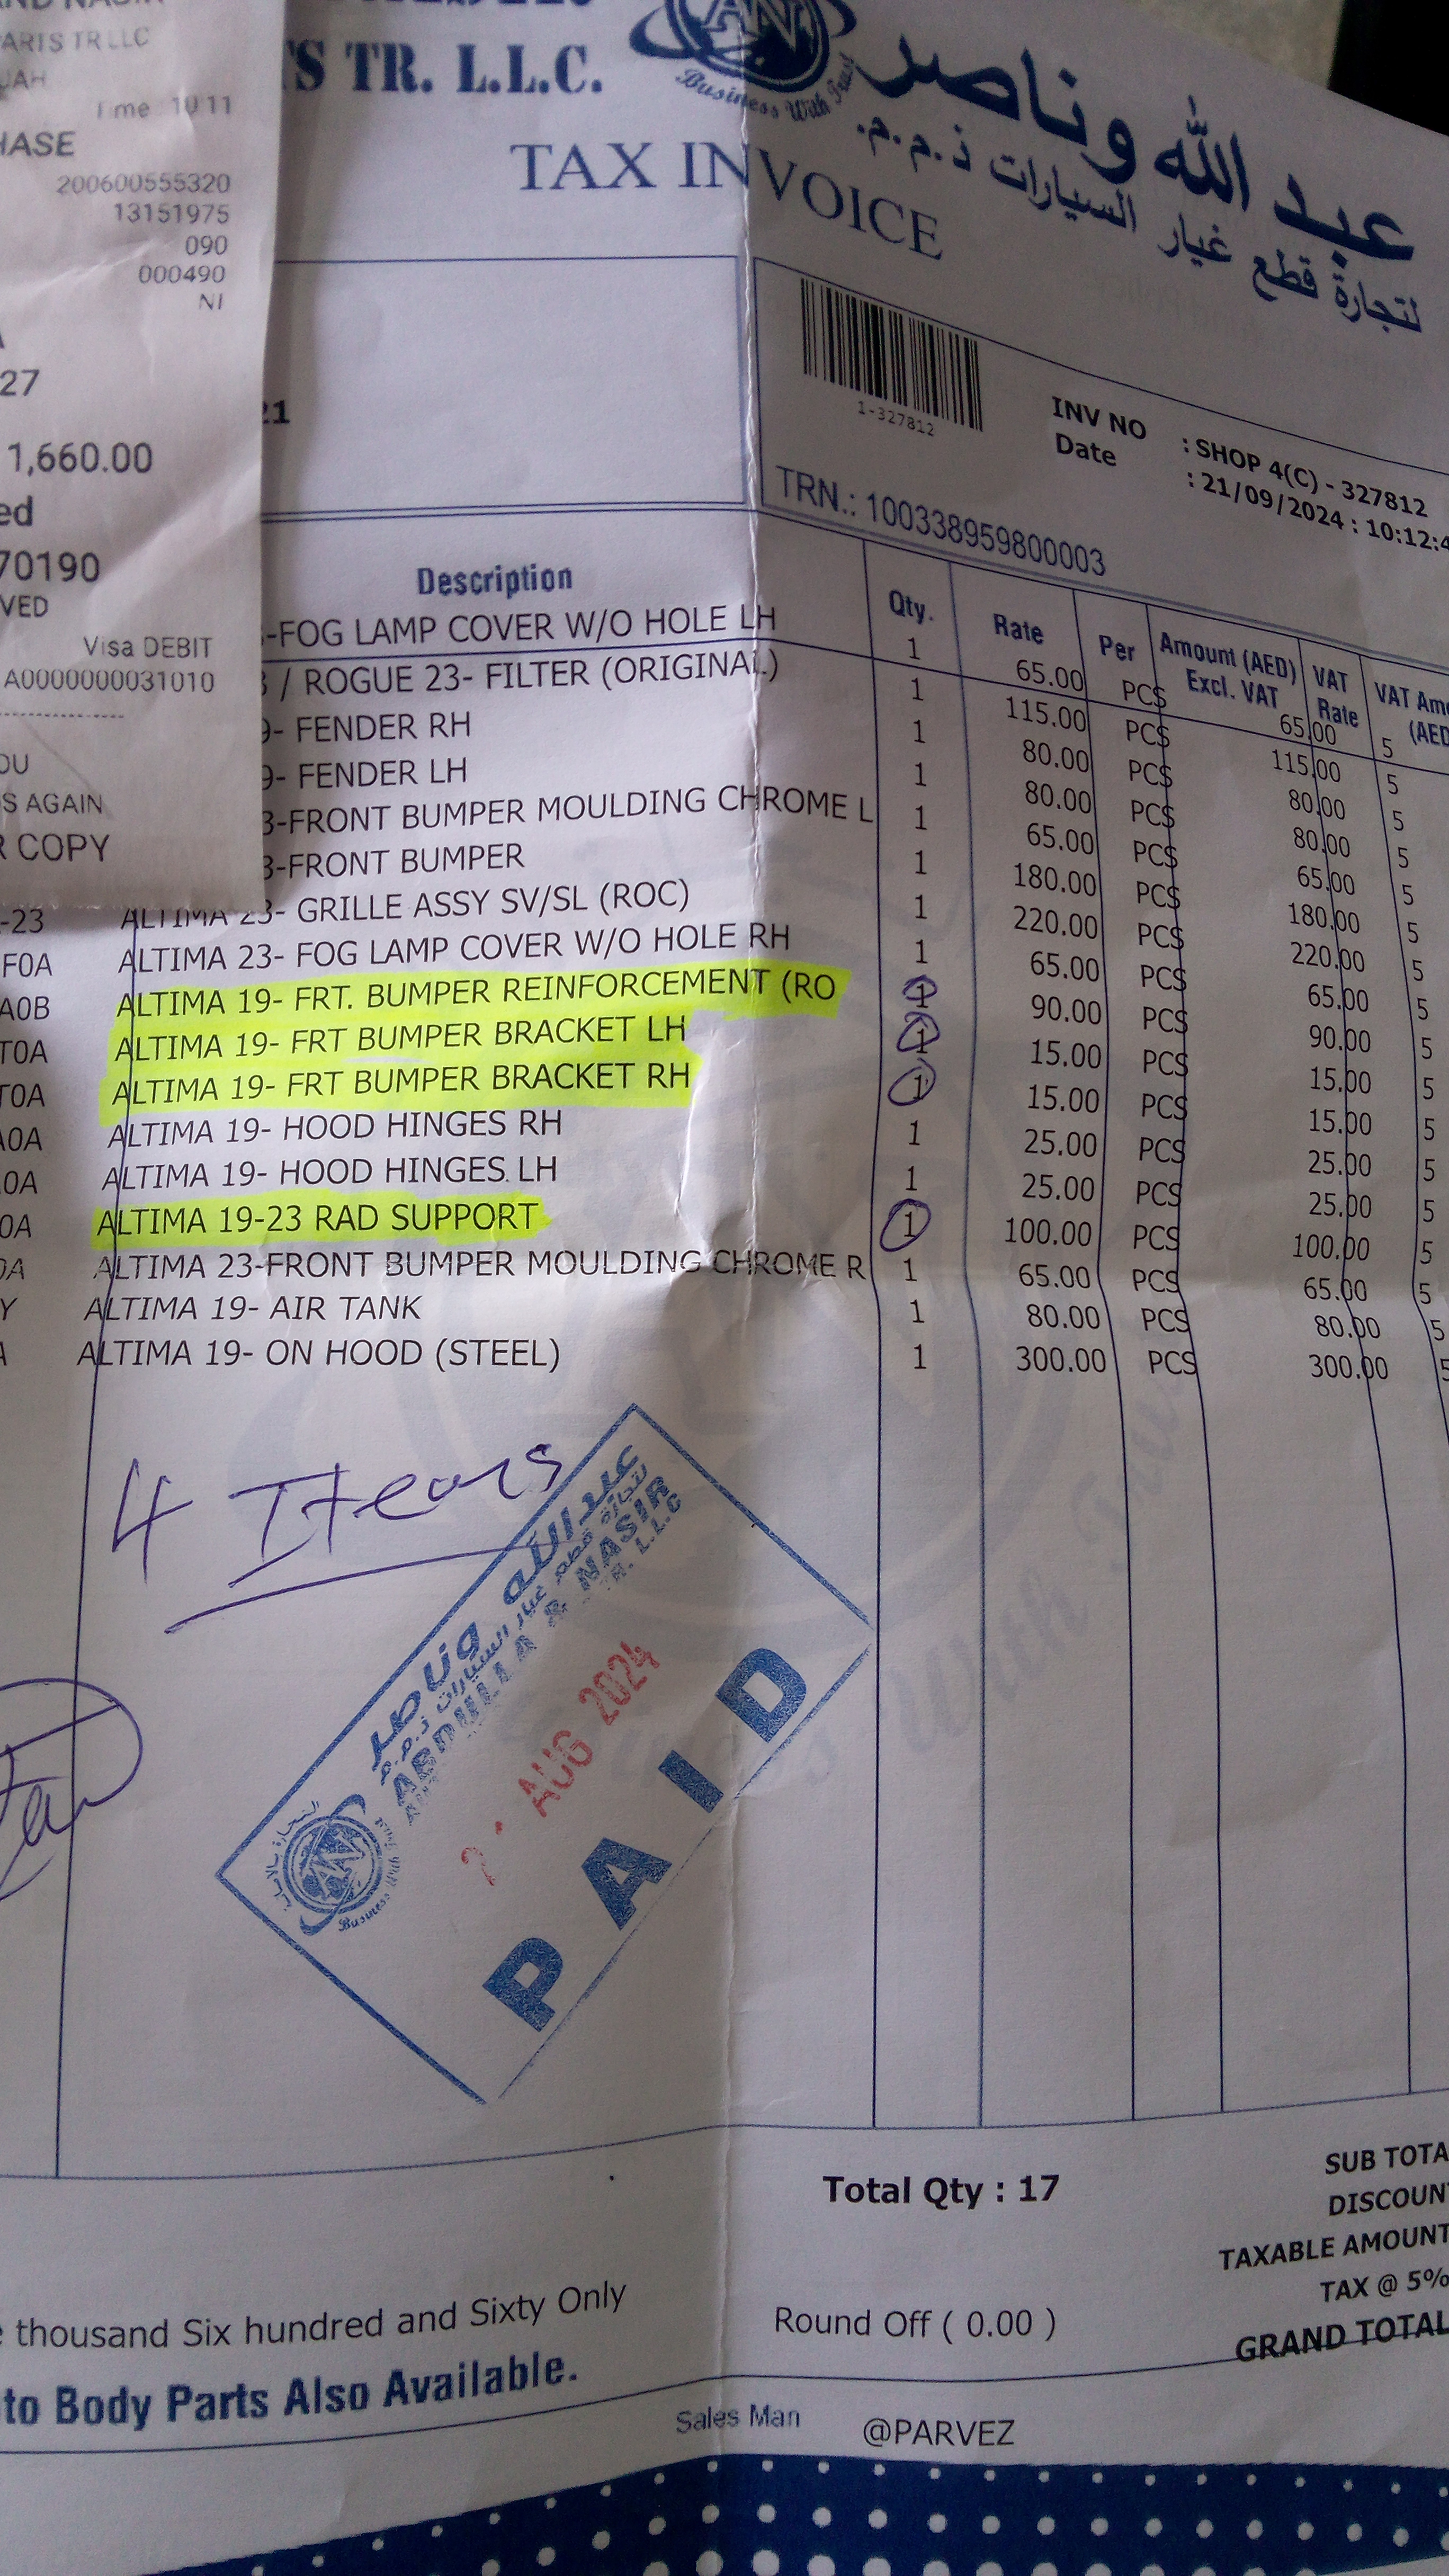 PARTS TR LLC
Time 10 11
HASE
200600555320
13151975
090
000490
NI
27
1,660.00
ed
70190
VED
Visa DEBIT
A0000000031010
OU
S AGAIN
R COPY
S TR. L.L.C.
AN
Business With Trust
عبد الله وناصر
لتجارة قطع غيار السيارات ذ.م.م.
TAX INVOICE
21
1-327812
INV NO : SHOP 4(C) - 327812
Date : 21/09/2024 : 10:12:4
TRN.: 100338959800003
Description Qty. Rate Per Amount (AED) Excl. VAT VAT Rate VAT Am (AED
-FOG LAMP COVER W/O HOLE LH 1 65.00 PCS 65.00 5
/ ROGUE 23- FILTER (ORIGINAL) 1 115.00 PCS 115.00 5
9- FENDER RH 1 80.00 PCS 80.00 5
9- FENDER LH 1 80.00 PCS 80.00 5
3-FRONT BUMPER MOULDING CHROME L 1 65.00 PCS 65.00 5
3-FRONT BUMPER 1 180.00 PCS 180.00 5
-23 ALTIMA 23- GRILLE ASSY SV/SL (ROC) 1 220.00 PCS 220.00 5
F0A ALTIMA 23- FOG LAMP COVER W/O HOLE RH 1 65.00 PCS 65.00 5
A0B ALTIMA 19- FRT. BUMPER REINFORCEMENT (RO 1 90.00 PCS 90.00 5
T0A ALTIMA 19- FRT BUMPER BRACKET LH 1 15.00 PCS 15.00 5
T0A ALTIMA 19- FRT BUMPER BRACKET RH 1 15.00 PCS 15.00 5
A0A ALTIMA 19- HOOD HINGES RH 1 25.00 PCS 25.00 5
0A ALTIMA 19- HOOD HINGES LH 1 25.00 PCS 25.00 5
0A ALTIMA 19-23 RAD SUPPORT 1 100.00 PCS 100.00 5
0A ALTIMA 23-FRONT BUMPER MOULDING CHROME R 1 65.00 PCS 65.00 5
Y ALTIMA 19- AIR TANK 1 80.00 PCS 80.00 5
A ALTIMA 19- ON HOOD (STEEL) 1 300.00 PCS 300.00 5
4 Items
عبد الله وناصر
لتجارة قطع غيار السيارات ذ.م.م
ABDULLA & NASIR
TR. L.L.C
AUG 2024
PAID
AN
Business
Total Qty : 17
SUB TOTA
DISCOUN
TAXABLE AMOUNT
TAX @ 5%
GRAND TOTAL
e thousand Six hundred and Sixty Only
Round Off ( 0.00 )
to Body Parts Also Available.
Sales Man @PARVEZ